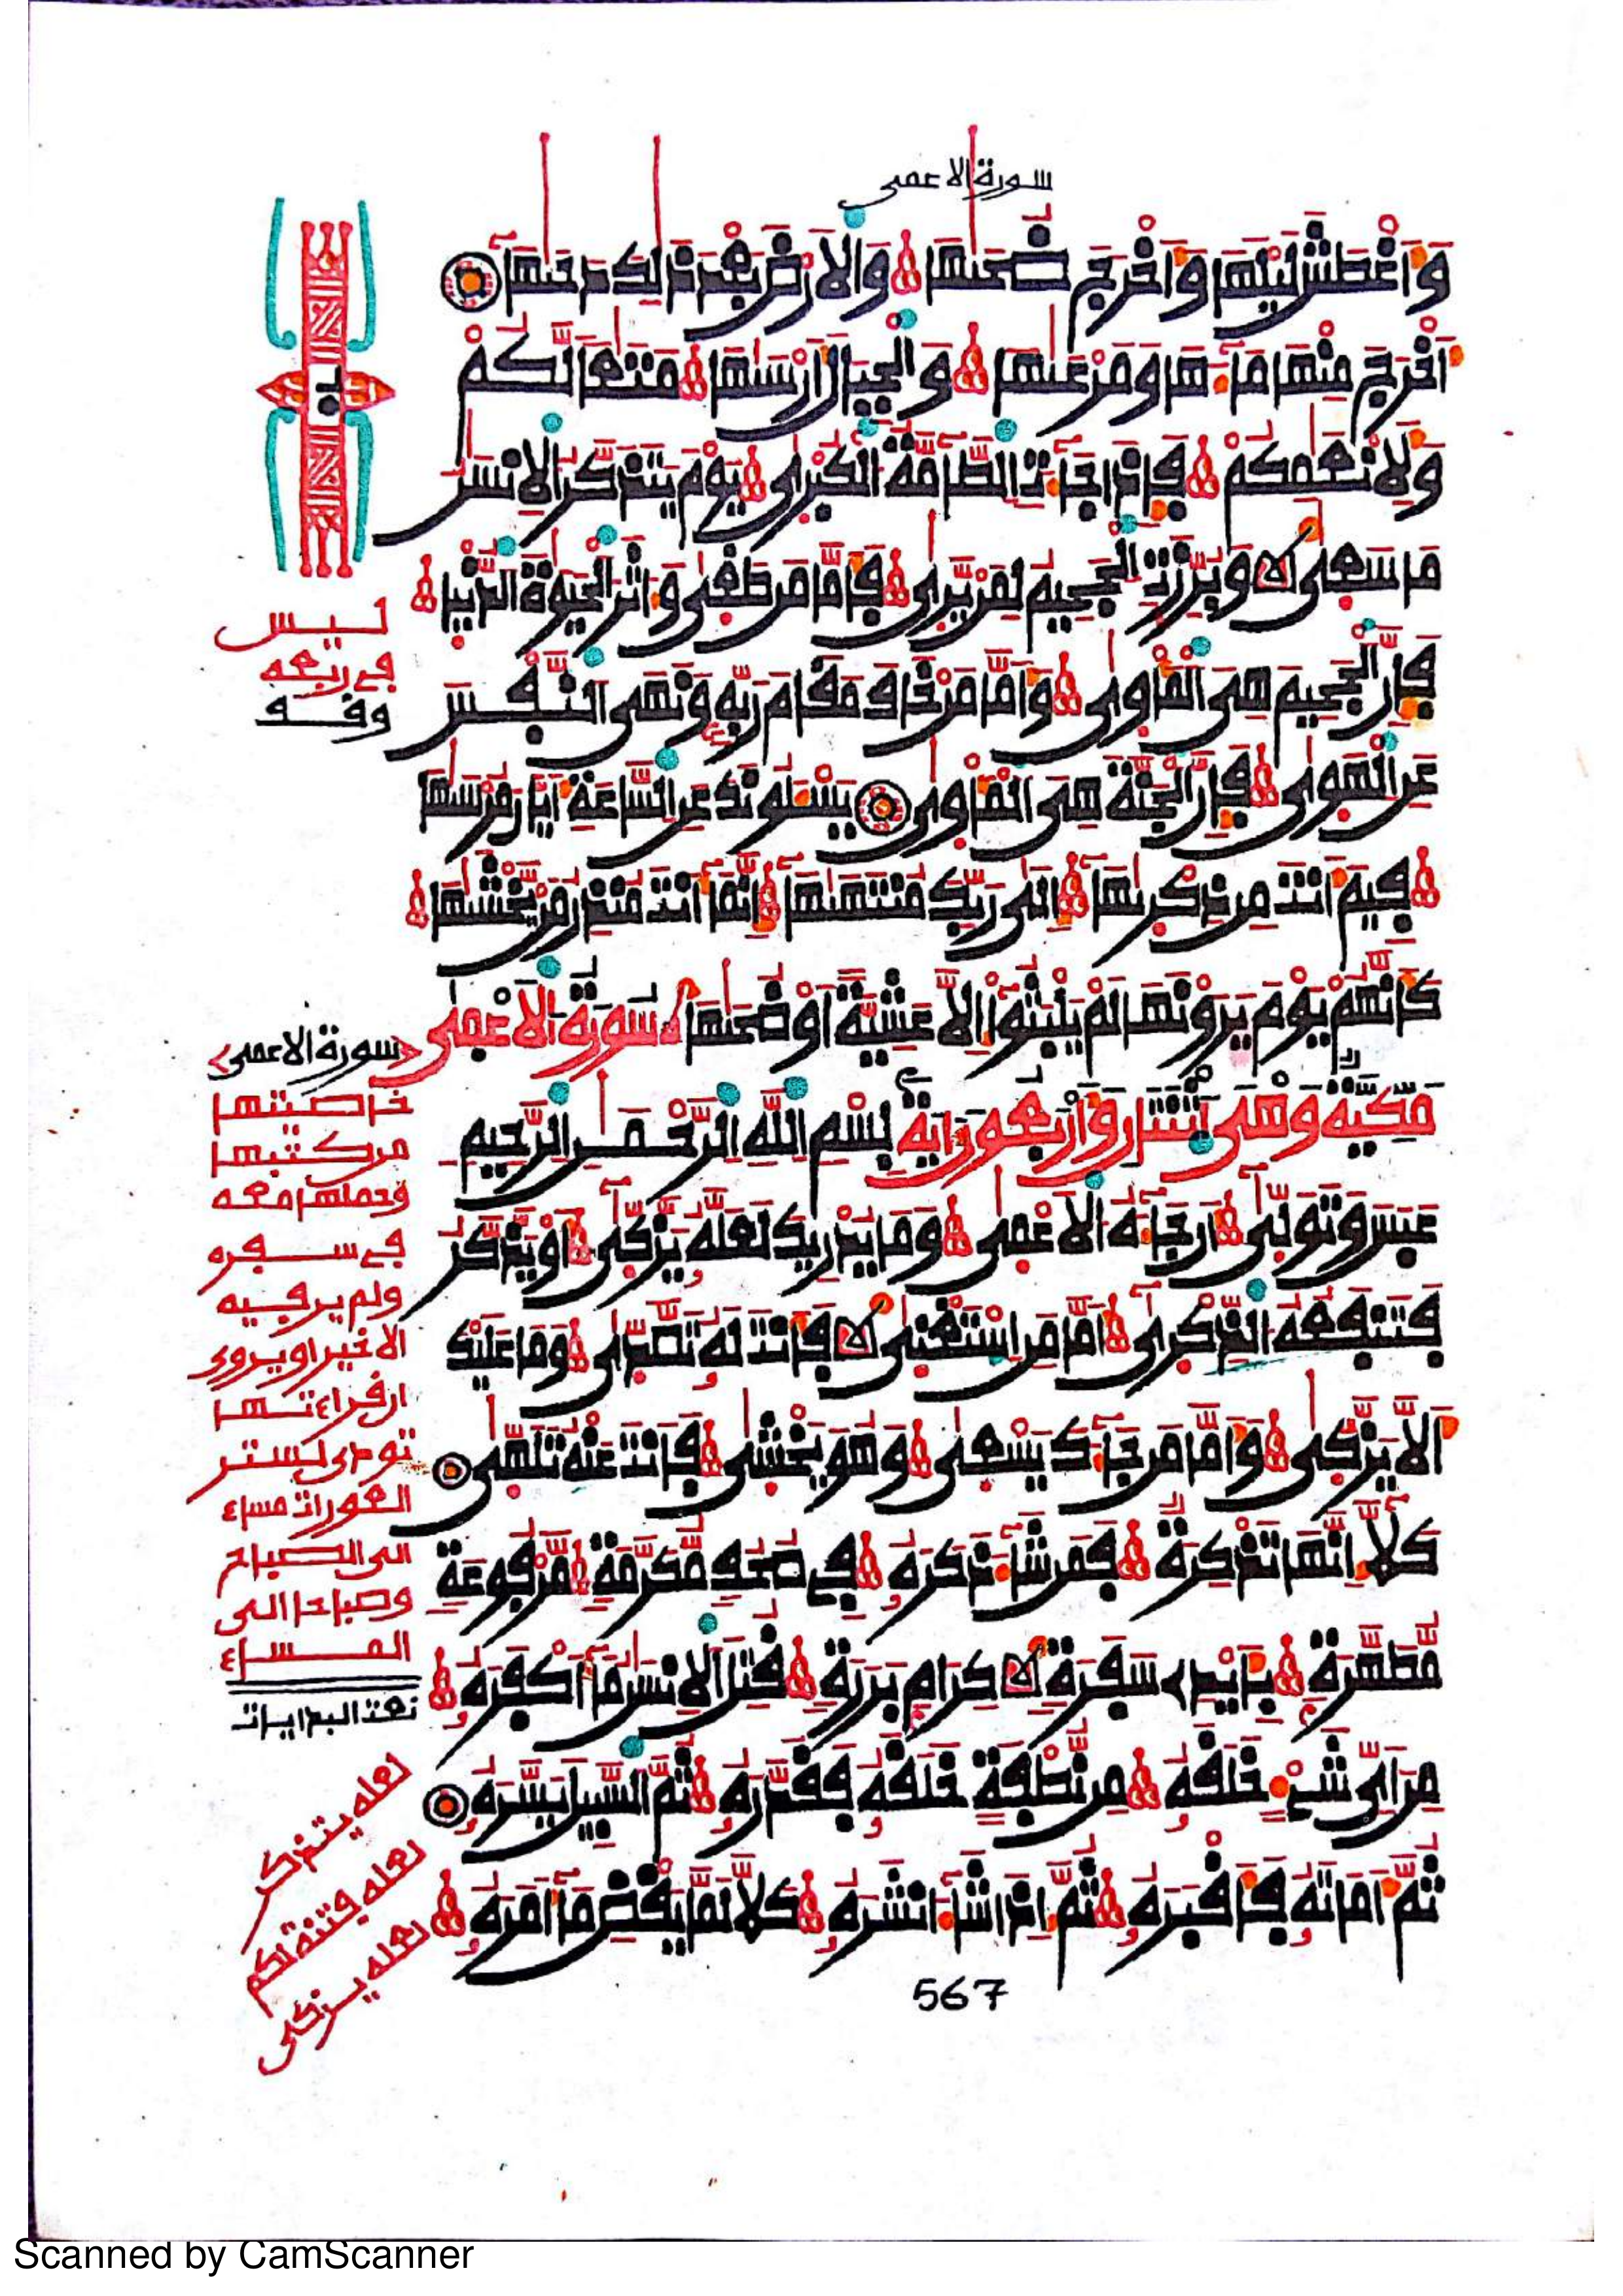 سورة الاعمى
وَأَغْطَشَ لَيْلَهَا وَأَخْرَجَ ضُحَىٰهَا وَالْأَرْضَ بَعْدَ ذَٰلِكَ دَحَىٰهَا
أَخْرَجَ مِنْهَا مَآءَهَا وَمَرْعَىٰهَا وَالْجِبَالَ أَرْسَىٰهَا مَتَٰعًا لَّكُمْ
وَلِأَنْعَٰمِكُمْ فَإِذَا جَآءَتِ الطَّآمَّةُ الْكُبْرَىٰ يَوْمَ يَتَذَكَّرُ الْإِنسَٰنُ
مَا سَعَىٰ وَبُرِّزَتِ الْجَحِيمُ لِمَن يَرَىٰ فَأَمَّا مَن طَغَىٰ وَءَاثَرَ الْحَيَوٰةَ الدُّنْيَا
فَإِنَّ الْجَحِيمَ هِيَ الْمَأْوَىٰ وَأَمَّا مَنْ خَافَ مَقَامَ رَبِّهِ وَنَهَى النَّفْسَ
عَنِ الْهَوَىٰ فَإِنَّ الْجَنَّةَ هِيَ الْمَأْوَىٰ يَسْـَٔلُونَكَ عَنِ السَّاعَةِ أَيَّانَ مُرْسَىٰهَا
فِيمَ أَنتَ مِن ذِكْرَىٰهَا إِلَىٰ رَبِّكَ مُنتَهَىٰهَا إِنَّمَا أَنتَ مُنذِرُ مَن يَخْشَىٰهَا
كَأَنَّهُمْ يَوْمَ يَرَوْنَهَا لَمْ يَلْبَثُوا إِلَّا عَشِيَّةً أَوْ ضُحَىٰهَا سورة الاعمى
مكية وهي اثنتان واربعون اية بِسْمِ اللَّهِ الرَّحْمَٰنِ الرَّحِيمِ
عَبَسَ وَتَوَلَّىٰ أَن جَآءَهُ الْأَعْمَىٰ وَمَا يُدْرِيكَ لَعَلَّهُ يَزَّكَّىٰ أَوْ يَذَّكَّرُ
فَتَنفَعُهُ الذِّكْرَىٰ أَمَّا مَنِ اسْتَغْنَىٰ فَأَنتَ لَهُ تَصَّدَّىٰ وَمَا عَلَيْكَ
أَلَّا يَزَّكَّىٰ وَأَمَّا مَن جَآءَكَ يَسْعَىٰ وَهُوَ يَخْشَىٰ فَأَنتَ عَنْهُ تَلَهَّىٰ
كَلَّا إِنَّهَا تَذْكِرَةٌ فَمَن شَآءَ ذَكَرَهُ فِي صُحُفٍ مُّكَرَّمَةٍ مَّرْفُوعَةٍ
مُّطَهَّرَةٍ بِأَيْدِي سَفَرَةٍ كِرَامٍ بَرَرَةٍ قُتِلَ الْإِنسَٰنُ مَا أَكْفَرَهُ
مِنْ أَيِّ شَيْءٍ خَلَقَهُ مِن نُّطْفَةٍ خَلَقَهُ فَقَدَّرَهُ ثُمَّ السَّبِيلَ يَسَّرَهُ
ثُمَّ أَمَاتَهُ فَأَقْبَرَهُ ثُمَّ إِذَا شَآءَ أَنشَرَهُ كَلَّا لَمَّا يَقْضِ مَا أَمَرَهُ
567
ليس
في ربعه
وقف
سورة الاعمى
خاصيتها
من كتبها
وحملها معه
في سفره
ولم ير فيه
الا خيرا ويروى
ان قراءتها
العورات مساء
الى الصباح
وصباحا الى
المساء
نعت البدايات
لعله يتذكر
لعله فتنة لكم
لعله يزكى
Scanned by CamScanner